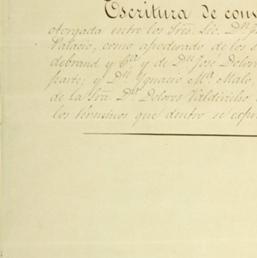 Escritura de con
otorgada entre los Sres. Lic. Dn
Palacio, como apoderado de los
debrand y Ca y de Dn José Dolor
parte; y Dn Ignacio Ma Malo
de la Sra Da Dolores Valdivielso
los términos que dentro se